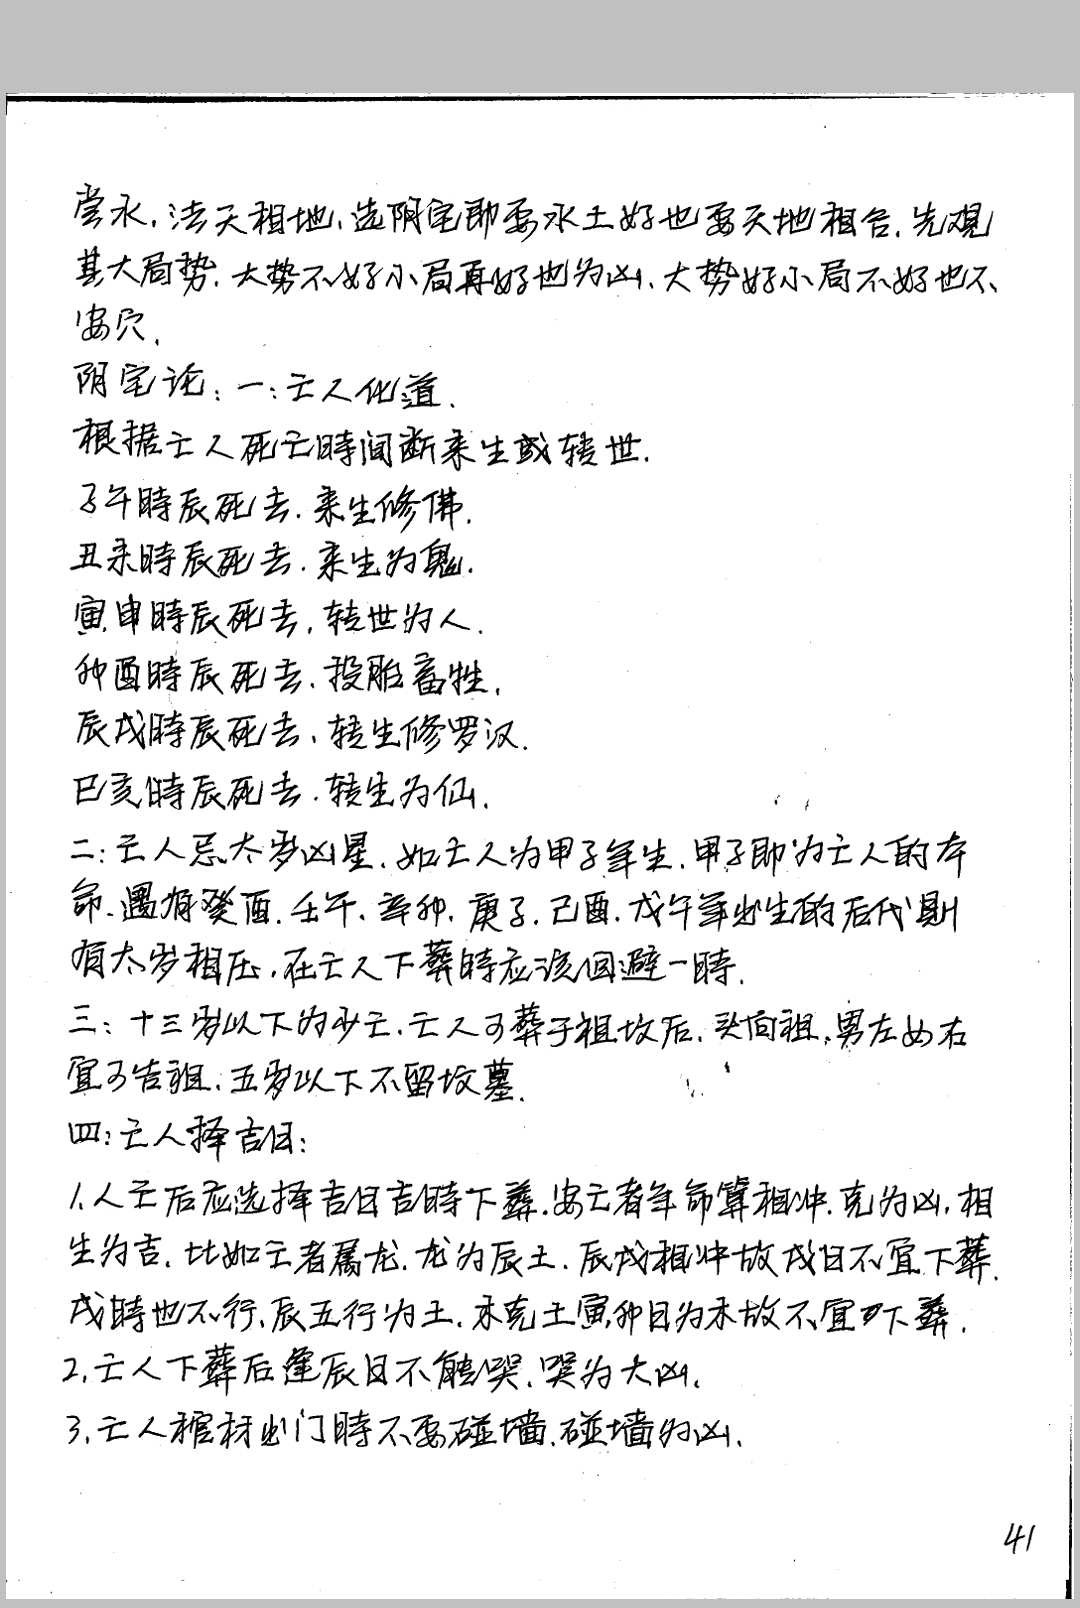 尝水，法天相地，选阴宅即要水土好也要天地相合，先观
其大局势，大势不好小局再好也为凶，大势好小局不好也不
安穴，
阴宅论：一：亡人化道．
根据亡人死亡時间断来生或转世．
子午時辰死去．来生修佛．
丑未時辰死去．来生为鬼．
寅申時辰死去，转世为人．
卯酉時辰死去．投胎畜牲．
辰戌時辰死去，转生修罗汉．
巳亥時辰死去．转生为仙．
二：亡人忌太岁凶星．如亡人为甲子年生．甲子即为亡人的本
命．遇有癸酉．壬午．辛卯．庚子．己酉．戊午年出生的后代則
有太岁相压，在亡人下葬時应该回避一時．
三：十三岁以下为少亡．亡人可葬于祖坟后，头向祖，男左女右
宜可告祖，五岁以下不留坟墓．
四：亡人择吉日：
1．人亡后应选择吉日吉時下葬．安亡者年命算相冲．克为凶，相
生为吉．比如亡者属龙．龙为辰土．辰戌相冲故戌日不宜下葬．
戌時也不行、辰五行为土．木克土寅，卯日为木故不宜下葬．
2．亡人下葬后逢辰日不能哭．哭为大凶．
3．亡人棺材出门時不要碰墙．碰墙为凶．
41